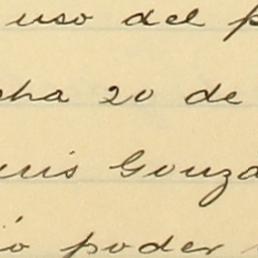 uso del p
cha 20 de
uis Gonza
ió poder